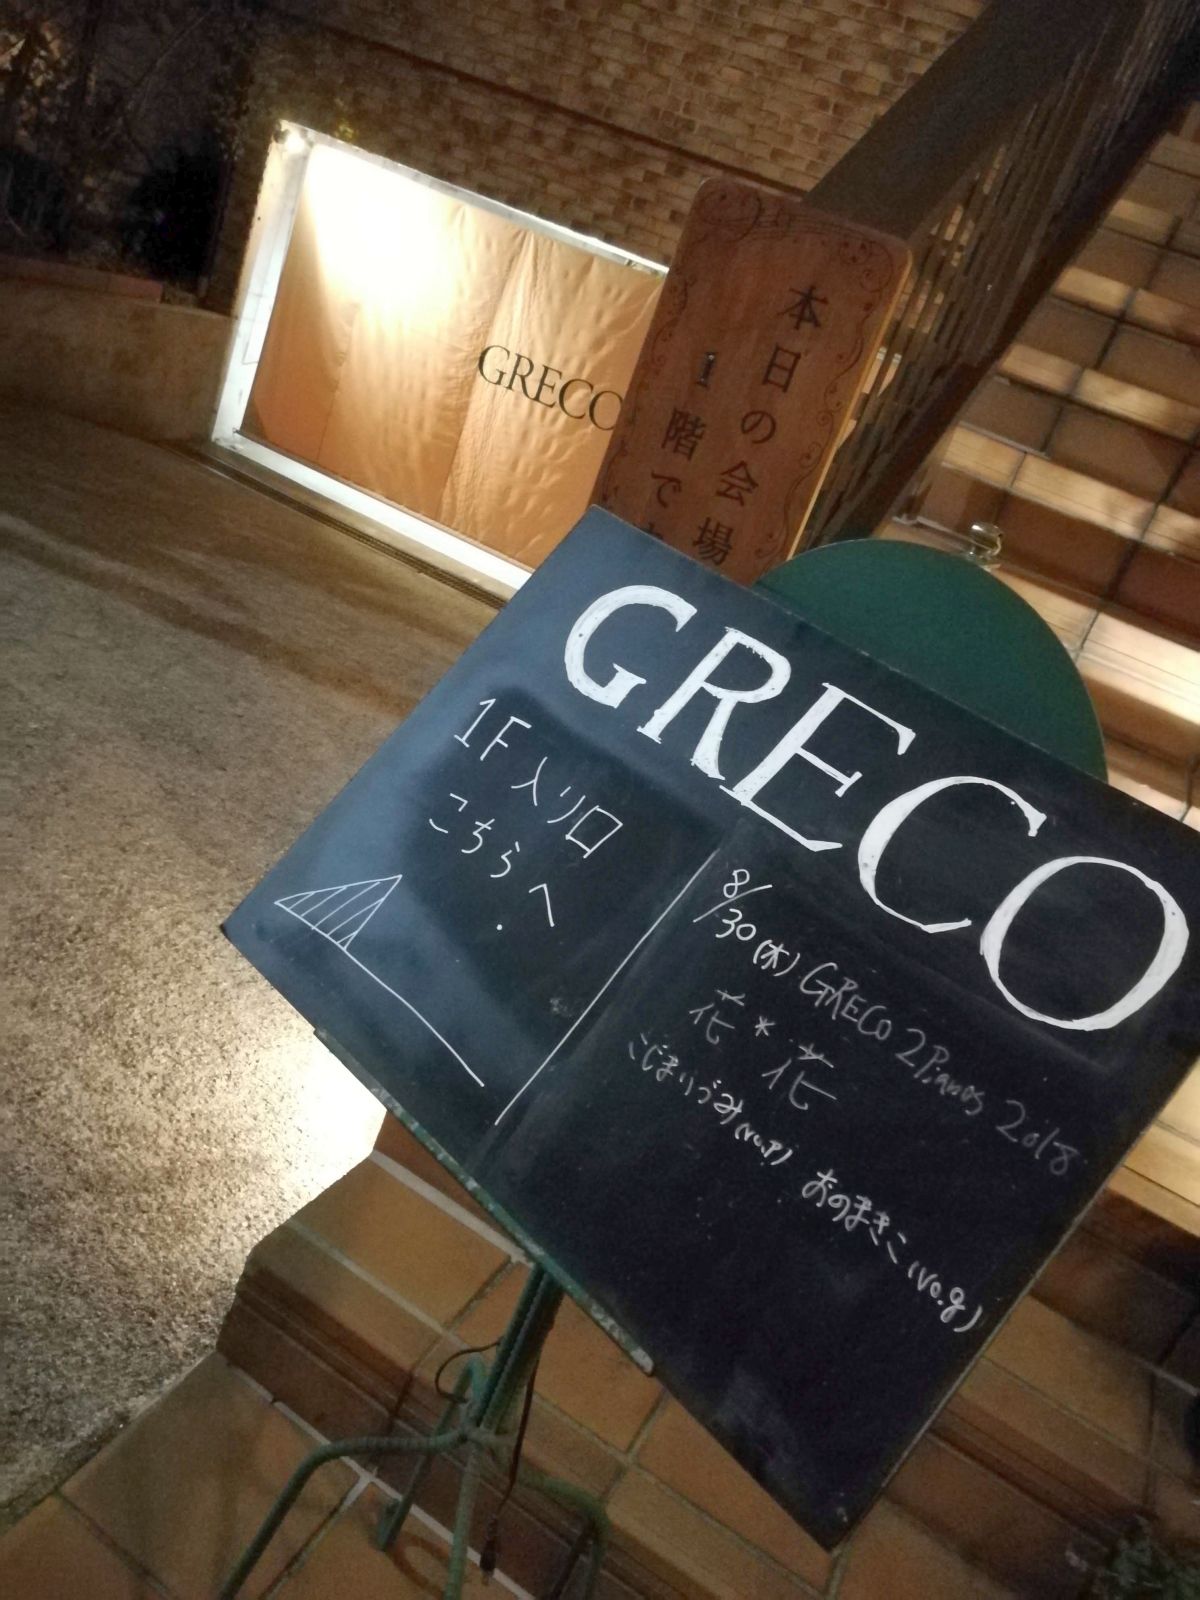 GRECO
本日の会場
1階で
GRECO
1F入り口
こちらへ.
8/30(木) GRECO 2Pianos 2018
花*花
こじまいづみ(vo.P) おのまきこ(vo.g)